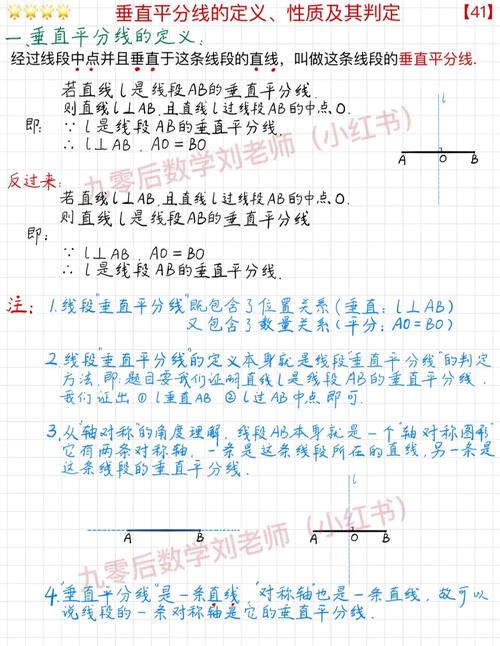 垂直平分线的定义、性质及其判定 【41】
一.垂直平分线的定义:
经过线段中点并且垂直于这条线段的直线，叫做这条线段的垂直平分线.
若直线l是线段AB的垂直平分线.
则直线l⊥AB,且直线l过线段AB的中点O.
即: ∵ l是线段AB的垂直平分线.
∴ l⊥AB, AO=BO
l
A O B
反过来:
若直线l⊥AB,且直线l过线段AB的中点O.
则直线l是线段AB的垂直平分线
即:
∵ l⊥AB, AO=BO
∴ l是线段AB的垂直平分线.
注: 1.线段"垂直平分线"既包含了位置关系(垂直:l⊥AB)
又包含了数量关系(平分:AO=BO)
2.线段"垂直平分线"的定义本身就是线段"垂直平分线"的判定
方法.即:题目要我们证明直线l是线段AB的垂直平分线.
我们证出 ①l垂直AB ②l过AB中点即可.
3.从"轴对称"的角度理解,线段AB本身就是一个"轴对称图形"
它有两条对称轴,一条是这条线段所在的直线,另一条是
这条线段的垂直平分线.
l
A B A O B
4."垂直平分线"是一条直线,"对称轴"也是一条直线,故可以
说线段的一条对称轴是它的垂直平分线.
九零后数学刘老师（小红书）
九零后数学刘老师（小红书）